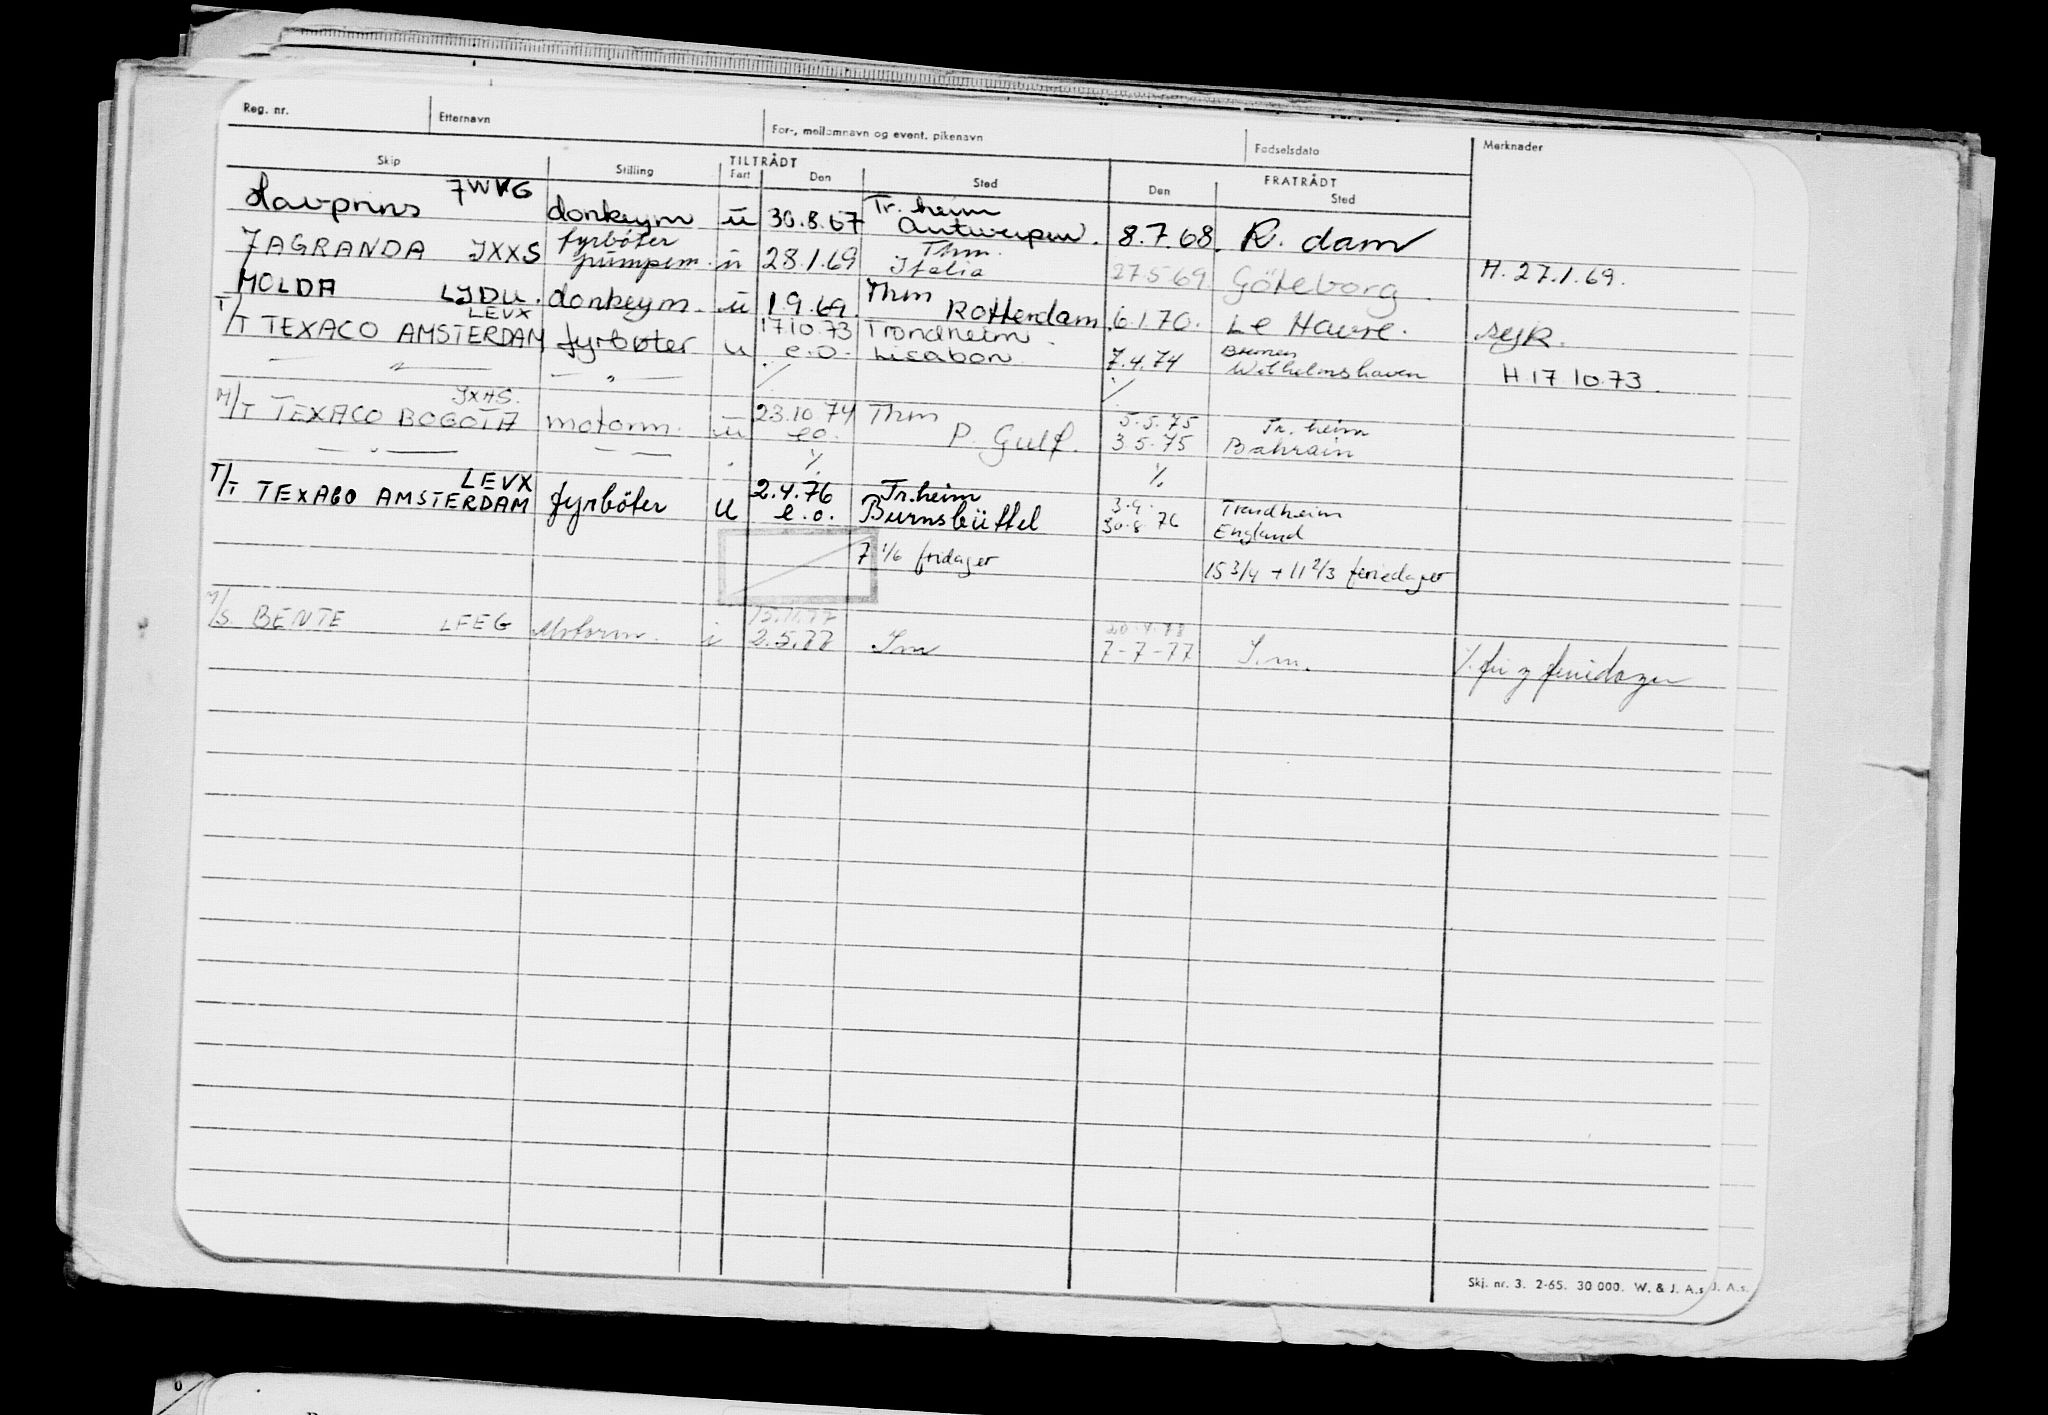 Reg. nr. Etternavn For-, mellomnavn og event. pikenavn Fødselsdato Merknader
Skip Stilling TILTRÅDT FRATRÅDT
Fart Den Sted Den Sted
Havprins 7WVG donkeym u 30.8.67 Tr. heim Antwerpen. 8.7.68. R. dam
JAGRANDA JXXS fyrbøter pumpem. u 28.1.69 Thm. Italia 27.5.69. Göteborg. H. 27.1.69.
MOLDA LJDU. donkeym. u 1.9.69. Thm Rotterdam 6.1.70. Le Havre. syk.
T/T TEXACO AMSTERDAM LEVX fyrbøter u 17.10.73 e.o. Trondheim. Lisabon. 7.4.74 Bremen Wilhelmshaven H.17 10.73.
— " — — " — ./. ./.
M/T TEXACO BOGOTA JXAS. motorm. u 23.10.74 e.o. Thm P. Gulf. 5.5.75 3.5.75 Tr. heim Bahrain
— " — — — ./. ./.
T/T TEXACO AMSTERDAM LEVX fyrbøter u 2.4.76 e.o. Tr.heim Burnsbüttel 3.9. 30.8.76 Trondheim England
7 1/6 fridager 15 3/4 + 11 2/3 feriedager
M/S. BENTE LEEG Motorm. i 2.5.77 I m 7-7-77 I.m. ./. fri g feriedager
Skj. nr. 3. 2-65. 30 000. W. & J. A.s J. A.s.